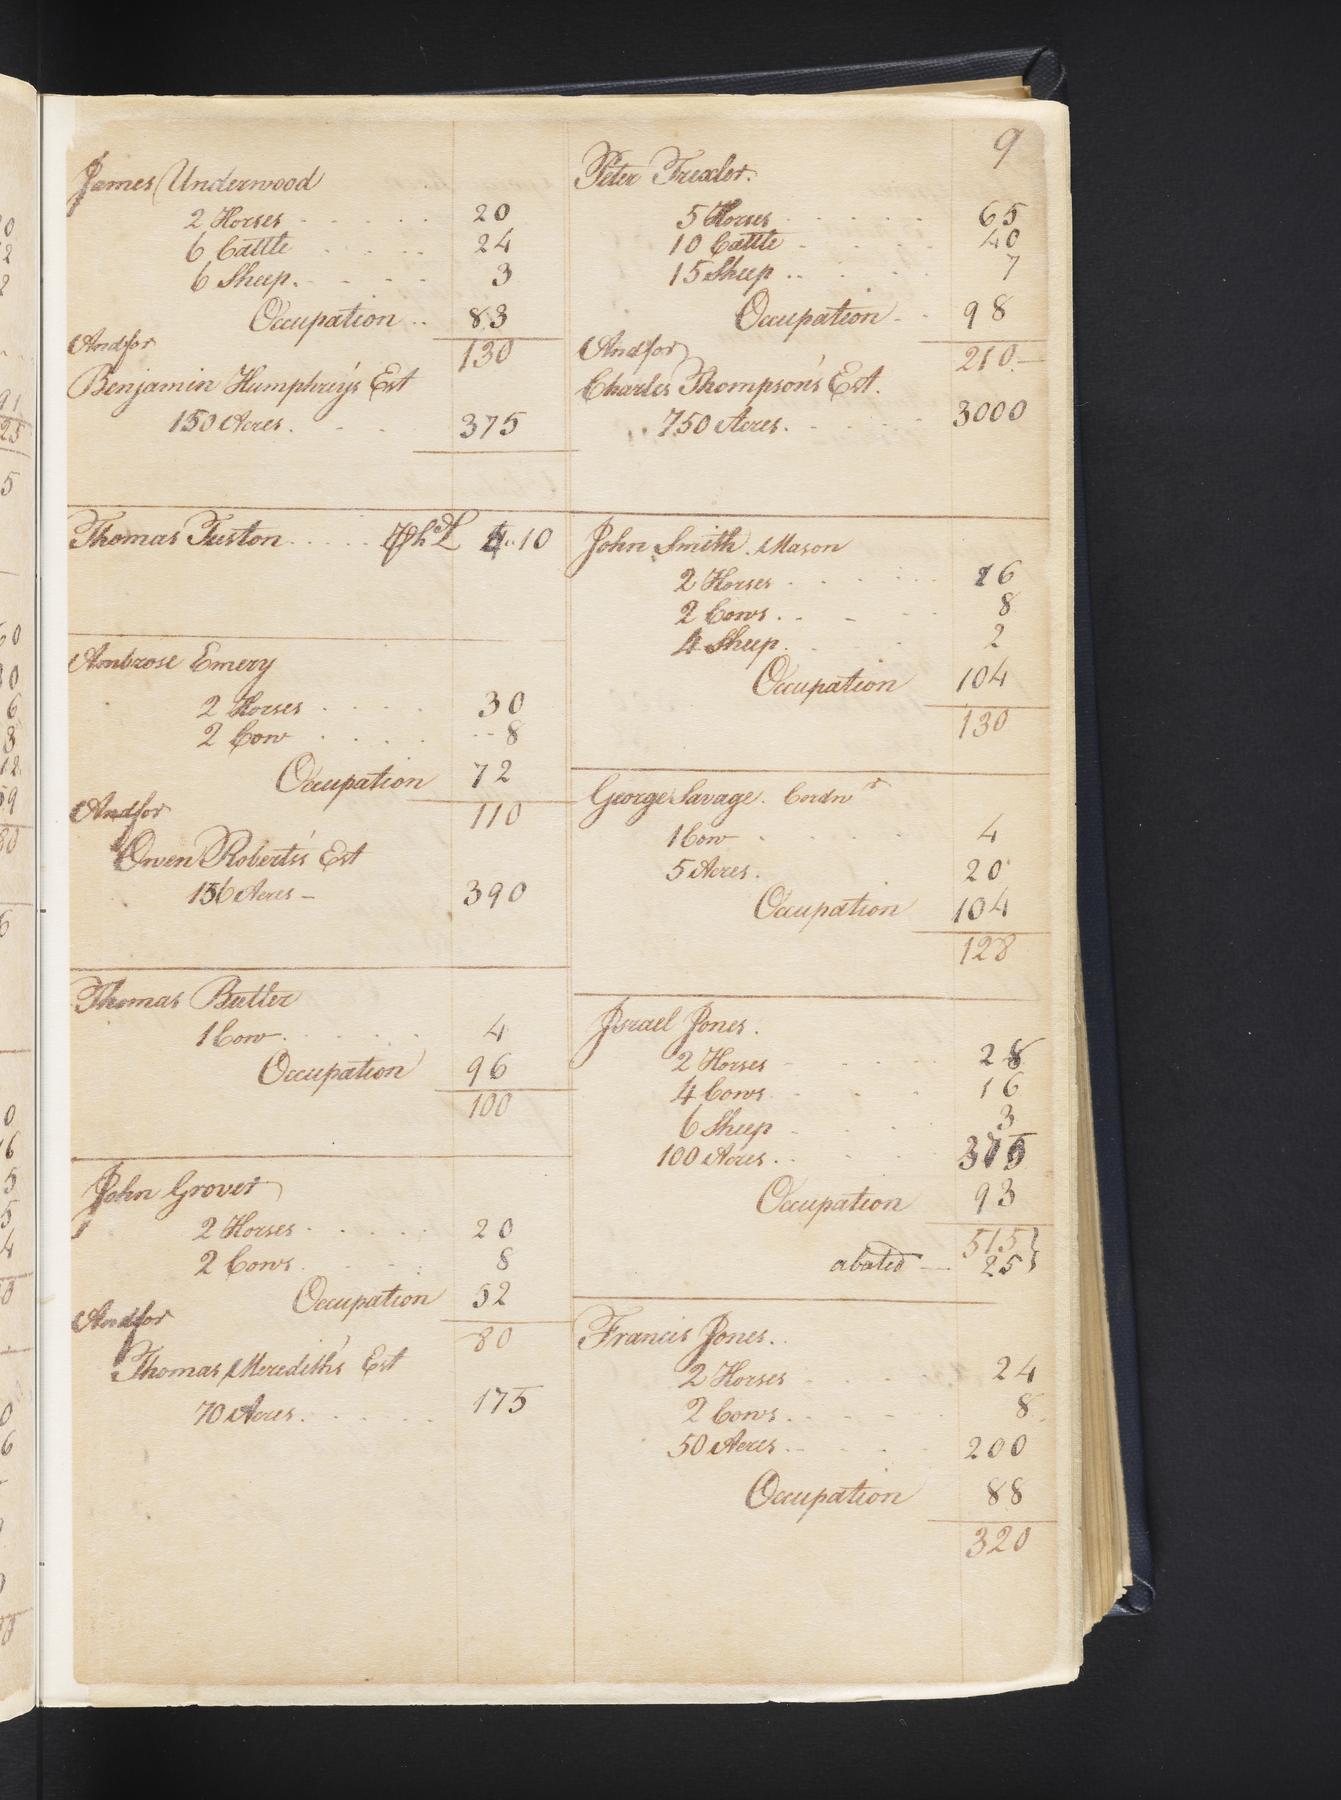 9
James Underwood
2 Horses 20
6 Cattle 24
6 Sheep 3
Occupation 83
And for 130
Benjamin Humphrey's Est
150 Acres 375
Thomas Fuston 10
Ambrose Emery
2 Horses 30
2 Cow 8
Occupation 72
And for 110
Owen Roberts's Est
156 Acres 390
Thomas Butler
1 Cow 4
Occupation 96
100
John Grover
2 Horses 20
2 Cows 8
Occupation 52
And for 80
Thomas Meredith's Est
70 Acres 175
Peter Trexler
5 Horses 65
10 Cattle 40
15 Sheep 7
Occupation 98
And for 210
Charles Thompson's Est.
750 Acres 3000
John Smith. Mason
2 Horses 16
2 Cows 8
4 Sheep 2
Occupation 104
130
George Savage. Cordnr
1 Cow 4
5 Acres 20
Occupation 104
128
Israel Jones
2 Horses 28
4 Cows 16
6 Sheep 3
100 Acres 375
Occupation 93
515
abated 25
Francis Jones
2 Horses 24
2 Cows 8
50 Acres 200
Occupation 88
320